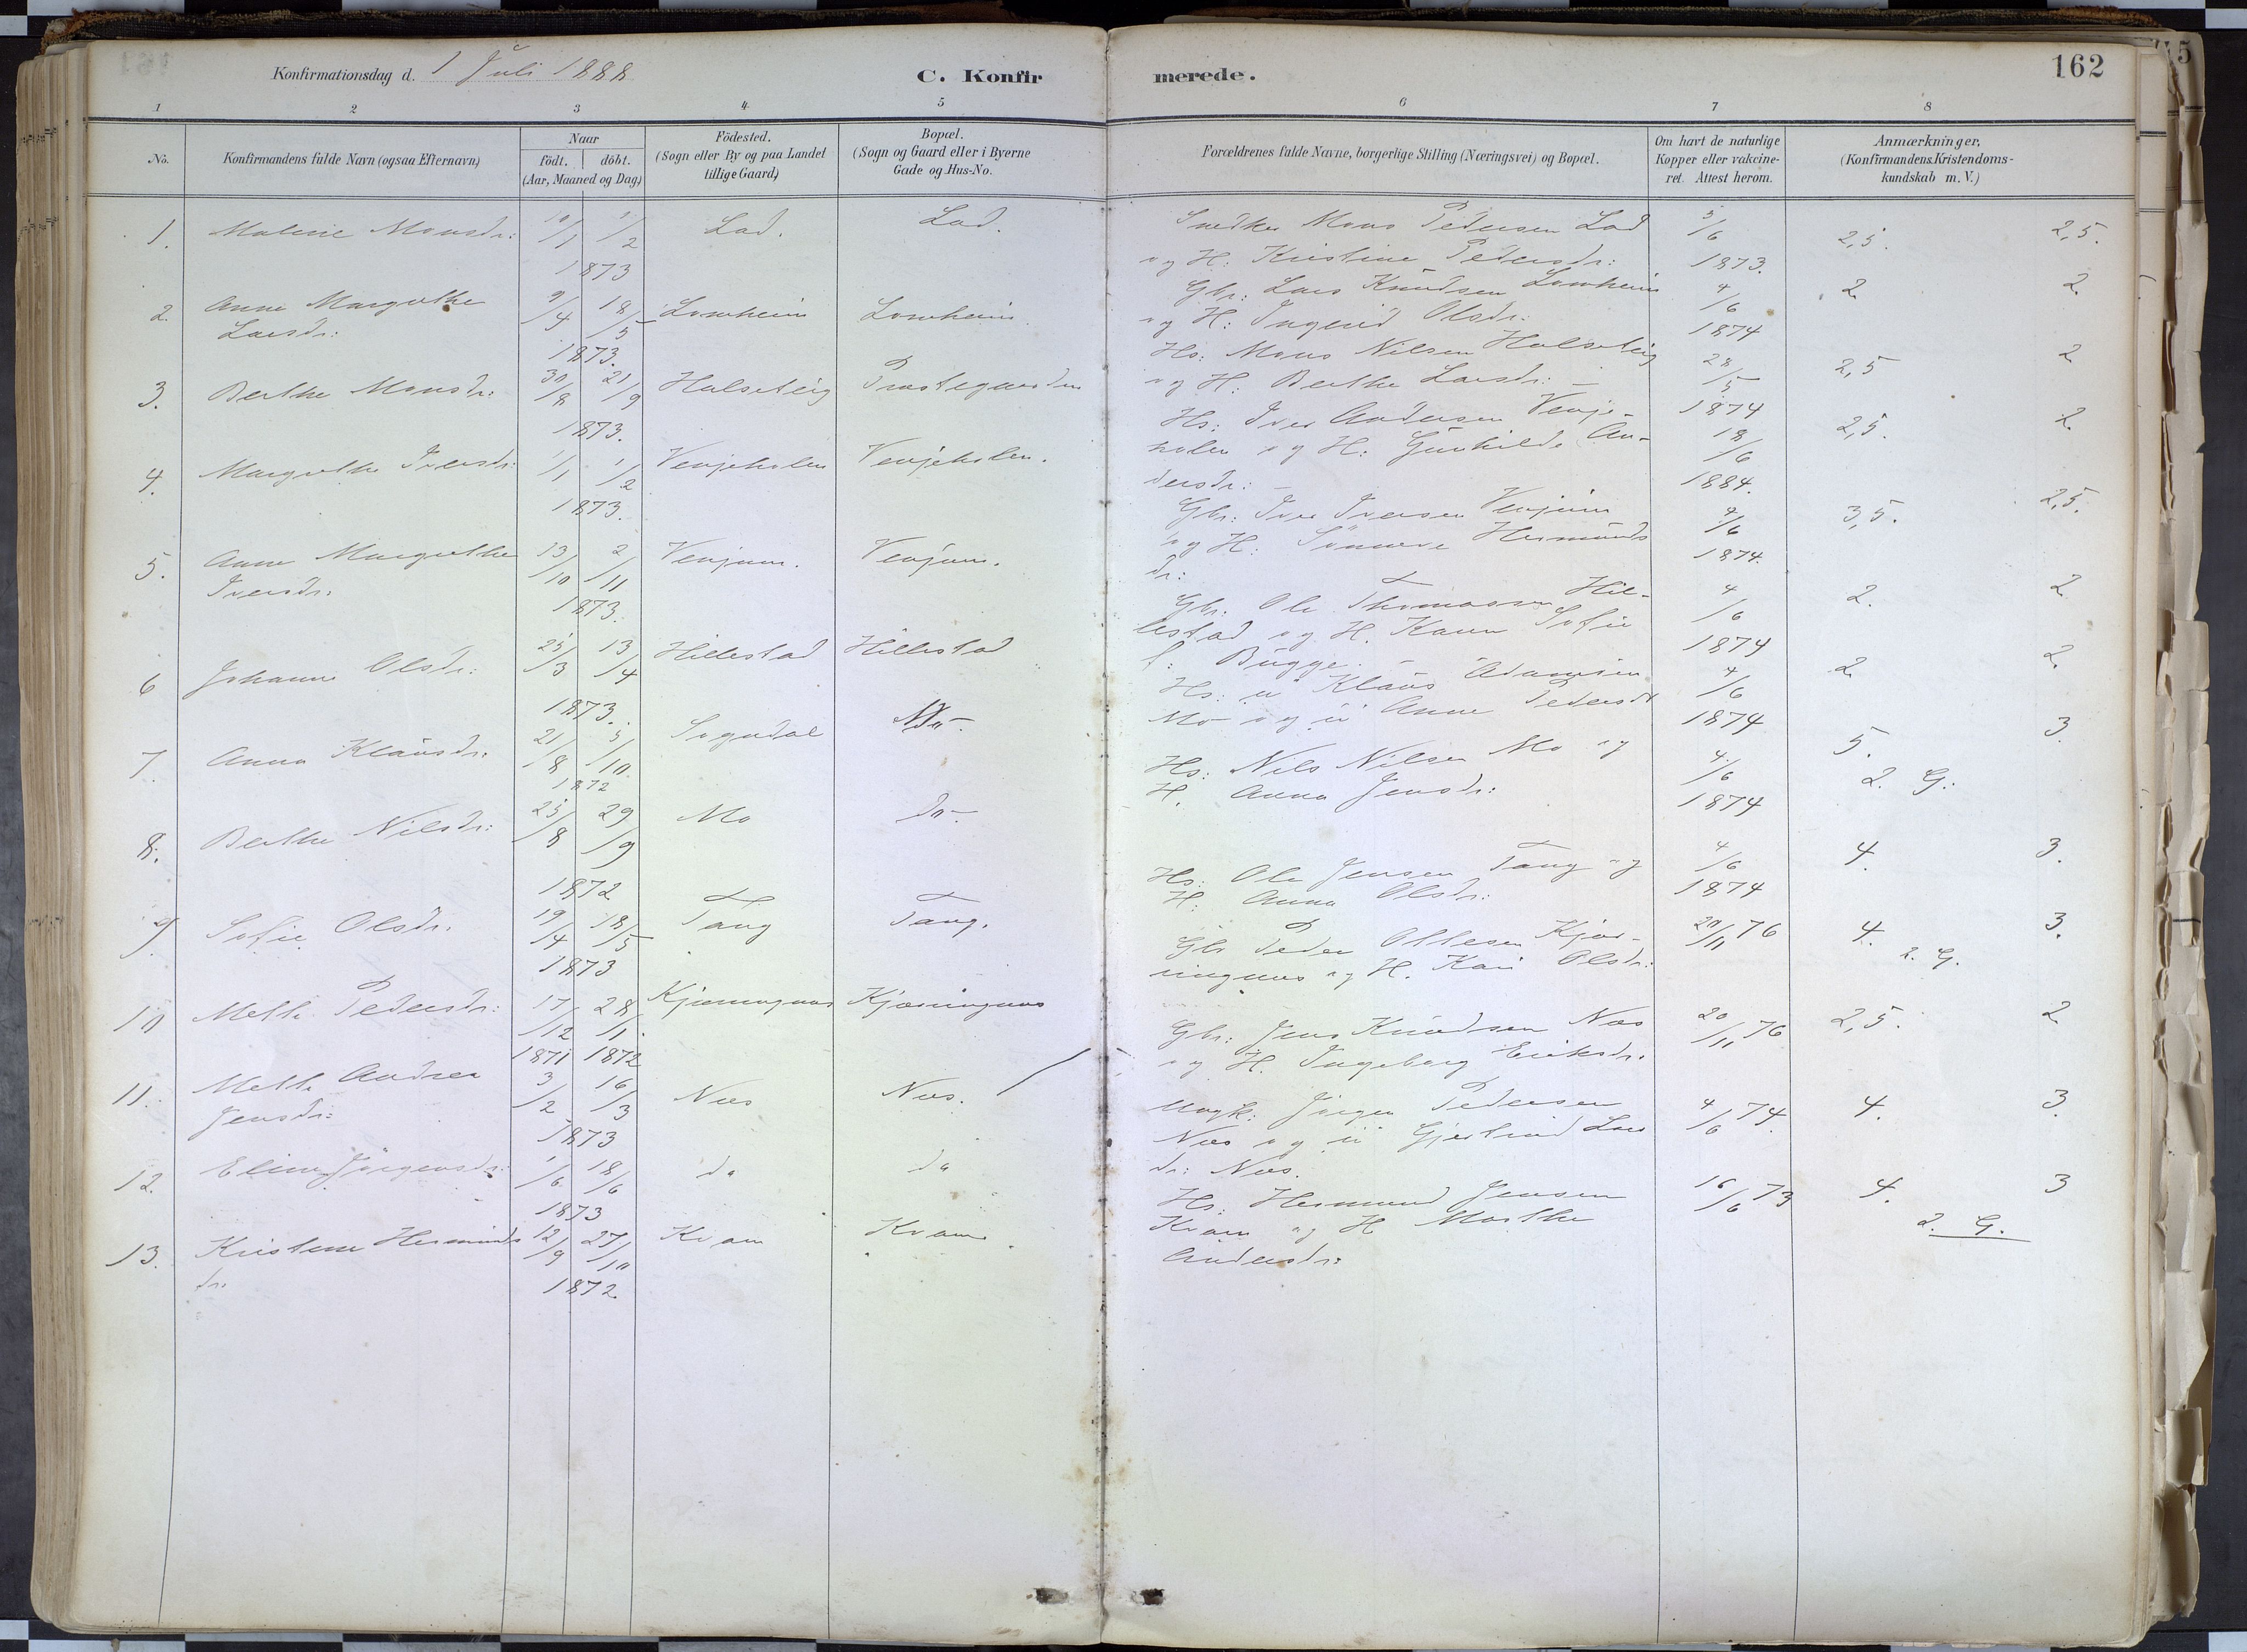 Konfirmationsdag d. 1 Juli 1888
C. Konfirmerede.
162
1 2 3 4 5 6 7 8
No.
Konfirmandens fulde Navn (ogsaa Efternavn)
Naar
födt. döbt.
(Aar, Maaned og Dag)
Födested.
(Sogn eller By og paa Landet
tillige Gaard)
Bopæl.
(Sogn og Gaard eller i Byerne
Gade og Hus-No.
Forældrenes fulde Navne, borgerlige Stilling (Næringsvei) og Bopæl.
Om havt de naturlige
Kopper eller vakcine-
ret. Attest herom.
Anmærkninger,
(Konfirmandens Kristendoms-
kundskab m. V.)
1. Malene Monsdr: 10/1 1/2 Lad. Lad. Snedker Mons Pedersen Lad 3/6 2,5. 2,5.
1873 og H: Kristine Pedersdr: 1873.
2. Anne Margrethe 9/4 18/5 Lomheim Lomheim. Gbr: Lars Knudsen Lomheim 4/6 2 2
Larsdr: 1873. og H: Ingerid Olsdr: 1874
3. Berthe Monsdr: 30/8 21/9 Halsteig Prestegaarden Hs: Mons Nilsen Halsteig 28/5 2,5 2
1873. og H: Berthe Larsdr: – 1874
4. Margrethe Iversdr: 1/1 1/2 Venjeholen Venjeholen. Hs: Iver Andersen Venje- 18/6 2,5. 2
1873. holen og H: Gunhilde An-
dersdr: – 1884.
5. Anne Margrethe 13/10 2/11 Venjum. Venjum. Gbr: Iver Iversen Venjum 4/6 3,5. 2,5.
Iversdr. 1873. og H: Sönneve Hermunds 1874.
dr:
6 Johanne Olsdr: 25/3 13/4 Hillestad Hillestad Gbr. Ole Thomassen Hil- 4/6 2. 2
1873. lestad og H. Karen Sofie 1874
f: Bugge.
7. Anna Klausdr: 21/8 5/10 Sogndal Mo. Hs: u Klaus Adamsen 4/6 2 2.
1872 Mo og u Anne Pedersdt 1874
8. Berthe Nilsdr: 25/8 29/9 Mo do. Hs: Nils Nilsen Mo og 4/6 5. 3
1872 H. Anna Jensdr: 1874 2. G.
9. Sofie Olsdr. 19/4 18/5 Tang Tang. Hs: Ole Jensen Tang og 4/6 4. 3.
1873 H. Anna Olsdr: 1874
10 Mette Pedersdr: 17/12 28/1 Kjæringnæs Kjæringnæs Gbr Peder Ollesen Kjær- 20/11 76 4. 3.
1871 1872 ingnæs og H. Kari Olsdr: 2. G.
11. Mette Andrea 3/2 16/3 Næs Næs. Gbr: Jens Knudsen Næs 20/11 76 2,5. 2
Jensdr: 1873 og H. Ingeborg Eriksdr.
12. Eline Jörgensdr: 1/6 18/6 do do Ungk: Jörgen Pedersen 4/6 74. 4. 3.
1873 Næs og u Gjertrud Lars
dr: Næs.
13. Kristene Hermunds 12/9 27/10 Kvam Kvam. Hs. Hermund Jensen 16/6 73 4. 3
dr. 1872. Kvam og H Marthe 2. G.
Andersdr: